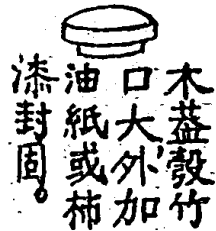 木葢殼竹
口大外加
油紙或柿
漆封固。